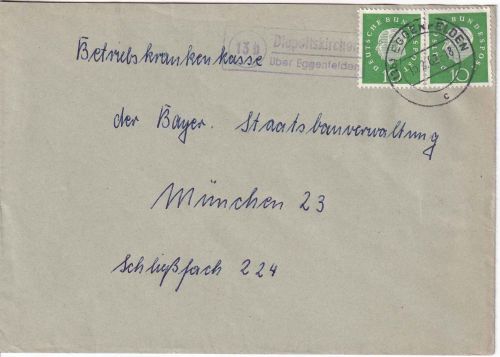 13 b
Diepoltskirchen
über Eggenfelden
DEUTSCHE BUNDESPOST
10
DEUTSCHE BUNDESPOST
10
EGGENFELDEN
c
Betriebskrankenkasse
der Bayer. Staatsbauverwaltung
München 23
Schließfach 224